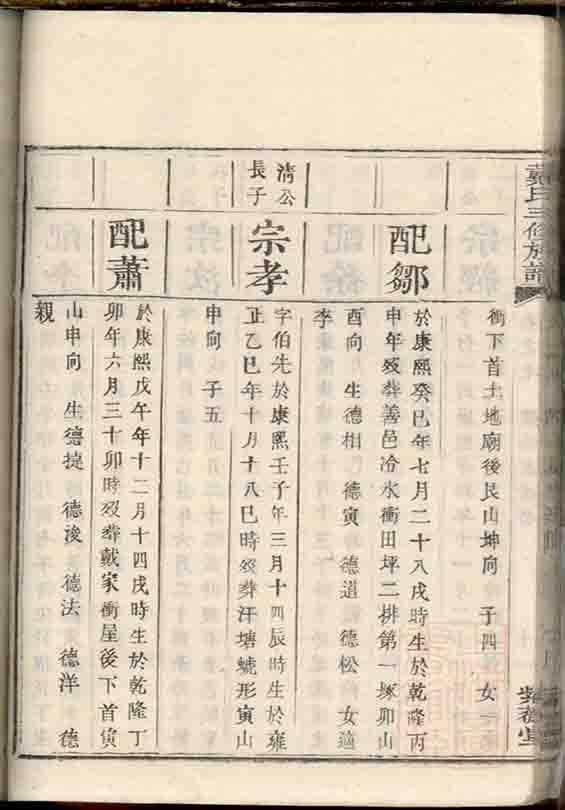 戴氏三修族譜
衝下首土地廟後艮山坤向 子四 女一
配鄒
於康熙癸巳年七月二十八戌時生於乾隆丙
申年歿葬善邑冷水衝田坪二排第一塚卯山
酉向 生德相 德寅 德道 德松 女適
李
清公
長子
宗孝
字伯先於康熙壬子年三月十四辰時生於雍
正乙巳年十月十八巳時歿葬汗塘虓形寅山
申向 子五
配蕭
於康熙戊午年十二月十四戌時生於乾隆丁
卯年六月三十卯時歿葬戴家衝屋後下首寅
山申向 生德提 德浚 德法 德洋 德
親